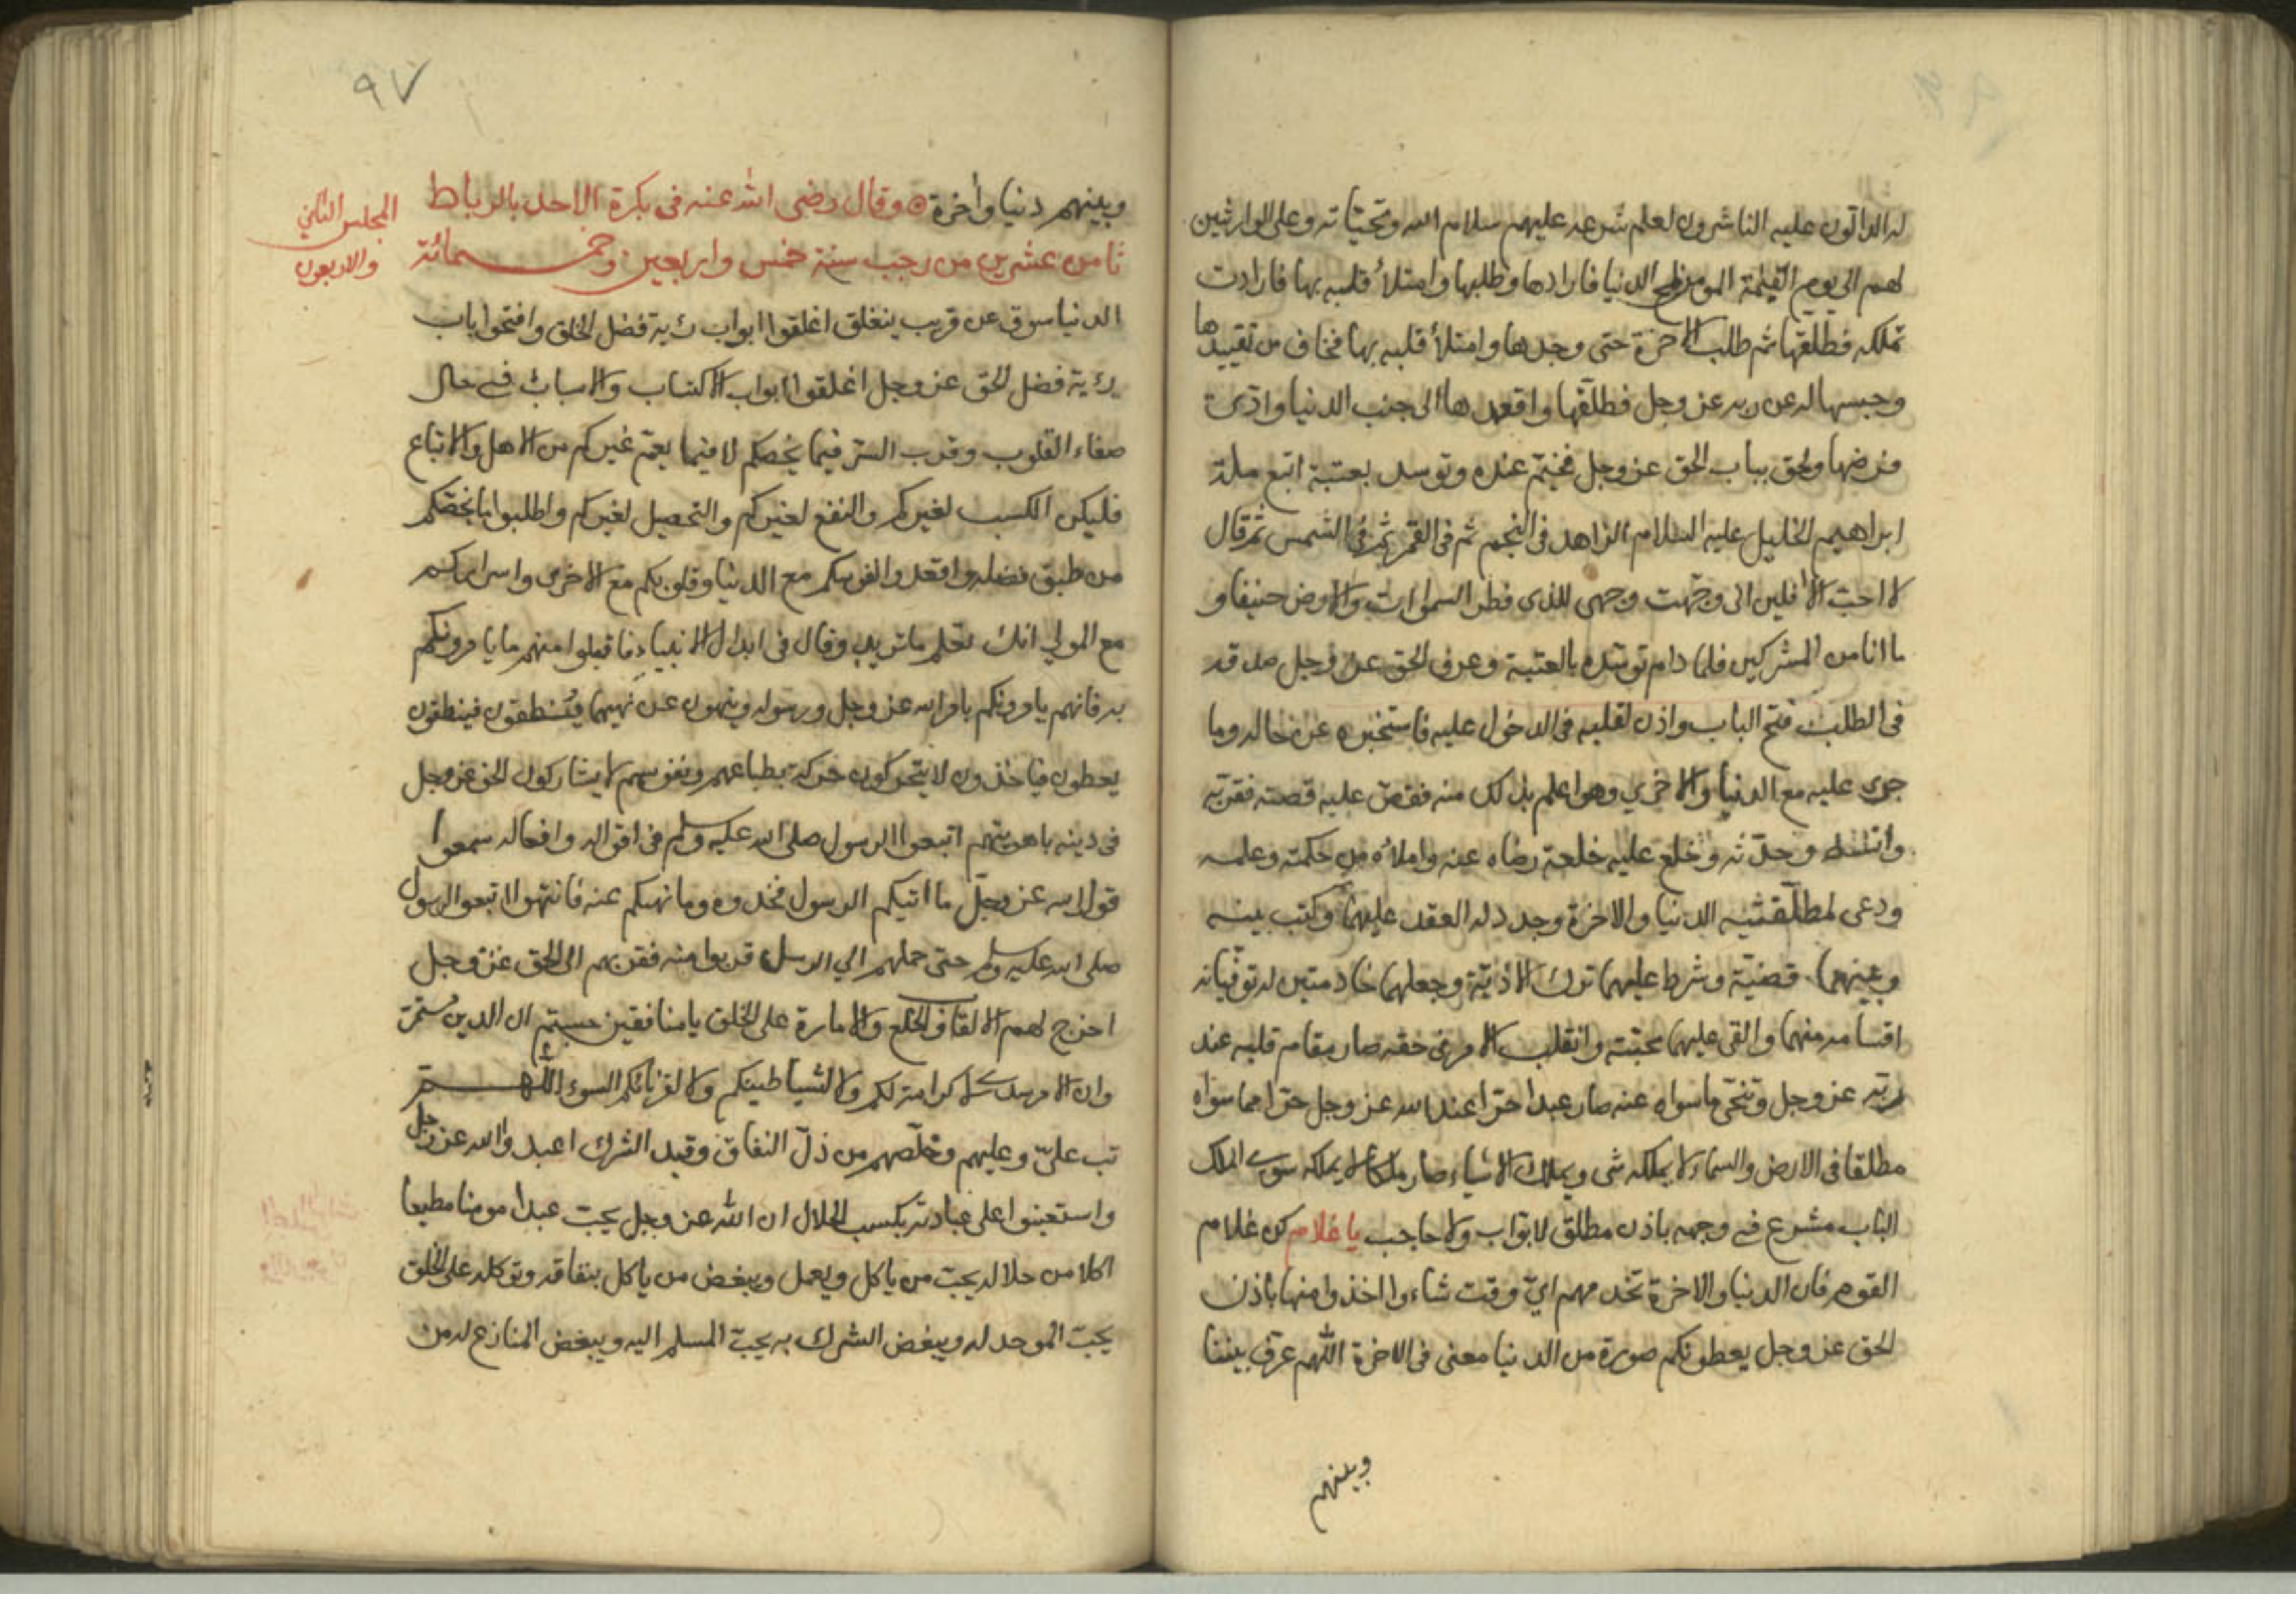 له الدالون عليه الناشرون لعلم شرعه عليهم سلام الله وتحياته وعلى الوارثين
لهم الى يوم القيمة المومن الدنيا فارادها وطلبها وامتلأ قلبه بها فارادت
تملكه فطلقها ثم طلب الاخرة حتى وجدها وامتلأ قلبه بها فخاف من تقييدها
وحبسها له عن ربه عز وجل فطلقها واقعدها الى جنب الدنيا وادى
فرضها ولحق بباب الحق عز وجل فخيم عنده وتوسد بعتبة اتبع ملة
ابراهيم الخليل عليه السلام الزاهد في النجم ثم في القمر ثم في الشمس ثم قال
لا احب الافلين اني وجهت وجهي للذي فطر السموات والارض حنيفا و
ما انا من المشركين فلما دام توسده بالعتبة وعرف الحق عز وجل صدقه
في الطلب فتح الباب واذن لقلبه في الدخول عليه فاستخبره عن حاله وما
جرى عليه مع الدنيا والاخرى وهو اعلم بذلك منه فقص عليه قصته فقربه
وانسه وحدثه وخلع عليه خلعة رضاه عنه واملأه من حكمته وعلمه
ودعى لمطلقتيه الدنيا والاخرة وجدد له العقد عليهما وكتب بينه
وبينهما قضية وشرط عليهما ترك الاذية وجعلهما خادمتين له توفيانه
اقسامه منهما والقى عليهما محبته وانقلب الامر في حقه صار مقام قلبه عند
ربه عز وجل وتنحى ما سواه عنه صار عبدا حرا عند الله عز وجل حرا مما سواه
مطلقا في الارض والسماء لا يملكه شي ويملك الاشياء صار ملكا لا يملكه سوى الملك
الباب مشرع في وجهه باذن مطلق لا بواب ولا حاجب يا غلام كن غلام
القوم فان الدنيا والاخرة تخدمهم اي وقت شاءوا اخذوا منها باذن
الحق عز وجل يعطونكم صورة من الدنيا معنى في الاخرة اللهم عرف بيننا
وبينهم
٩٧
وبينهم دنيا واخرة وقال رضى الله عنه في بكرة الاحد بالرباط
ثامن عشرين من رجب سنة خمس واربعين وخمسمائة
المجلس الثاني
والاربعون
الدنيا سوق عن قريب ينغلق اغلقوا ابواب رئية فضل الخلق وافتحوا باب
رئية فضل الحق عز وجل اغلقوا ابواب الاكتساب والاسباب في حال
صفاء القلوب وقرب السر فيما يخصكم لا فيما يعم غيركم من الاهل والاتباع
فليكن الكسب لغيركم والنفع لغيركم والتحصيل لغيركم واطلبوا ما يخصكم
من طبق فضله واقعدوا نفوسكم مع الدنيا وقلوبكم مع الاخرى واسراركم
مع المولى انك تعلم ما نريد وقال في ابدال الانبياء فاقبلوا منهم ما يامرونكم
به فانهم يامرونكم بامر الله عز وجل ورسوله وينهون عن نهيهما يُستنطقون فينطقون
يعطون فياخذون لا يتحركون حركة بطباعهم ونفوسهم لا يشاركون الحق عز وجل
في دينه باهويتهم اتبعوا الرسول صلى الله عليه وسلم في اقواله وافعاله سمعوا
قول الله عز وجل ما اتيكم الرسول فخذوه وما نهيكم عنه فانتهوا اتبعوا الرسول
صلى الله عليه وسلم حتى حملهم الي المرسل قربوا منه فقربهم الى الحق عز وجل
اخرج لهم الالقاب والخلع والامارة على الخلق يا منافقين حسبتم ان الدين
وان الامر لا كرامة لكم ولا لشياطينكم ولا لقرنائكم السوء اللهم
تب علي وعليهم وخلصهم من ذل النفاق وقيد الشرك اعبدوا الله عز وجل
واستعينوا على عبادته بكسب الحلال ان الله عز وجل يحب عبدا مومنا مطيعا
اكلا من حلاله يحب من ياكل ويعمل ويبغض من ياكل بنفاقه وتوكله على الخلق
يحب الموحد له ويبغض المشرك به يحب المسلم اليه ويبغض المنازع له من